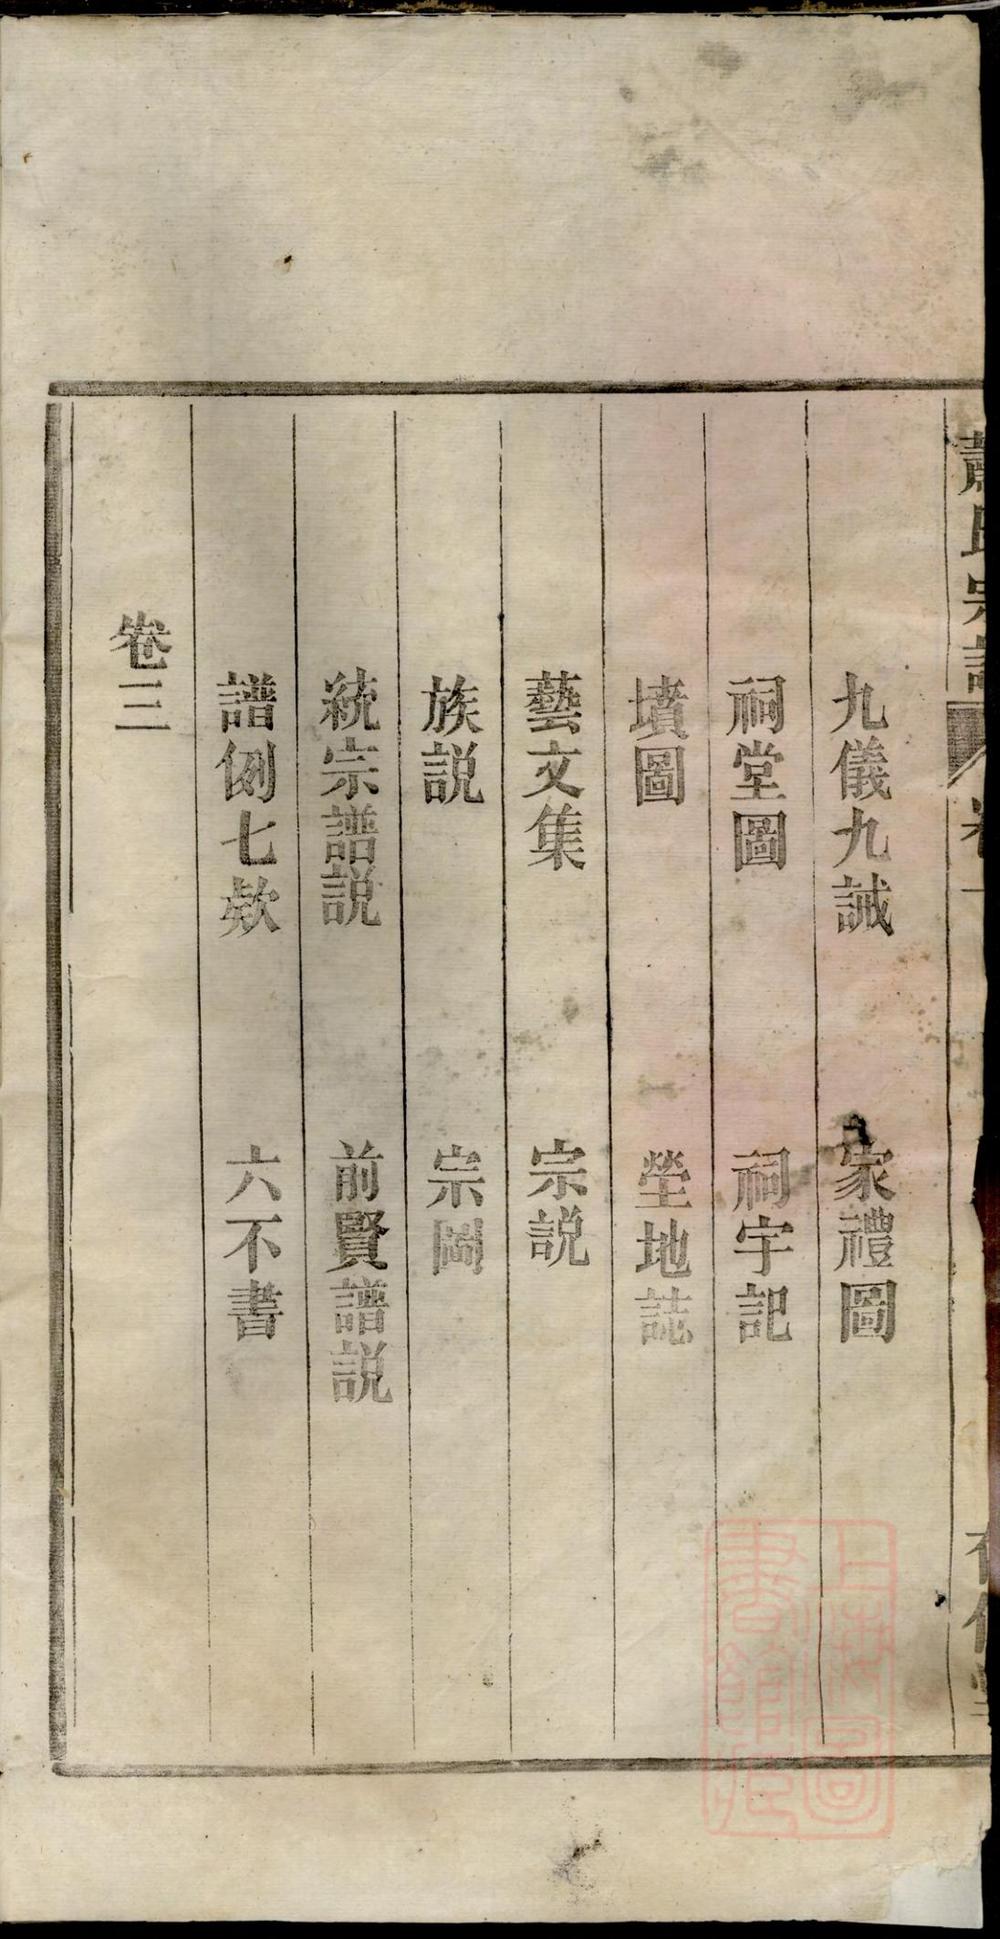 蕭氏宗譜 卷一
九儀九誡 家禮圖
祠堂圖 祠宇記
墳圖 塋地誌
藝文集 宗說
族說 宗圖
統宗譜說 前賢譜說
譜例七欵 六不書
卷三
上海圖書館藏